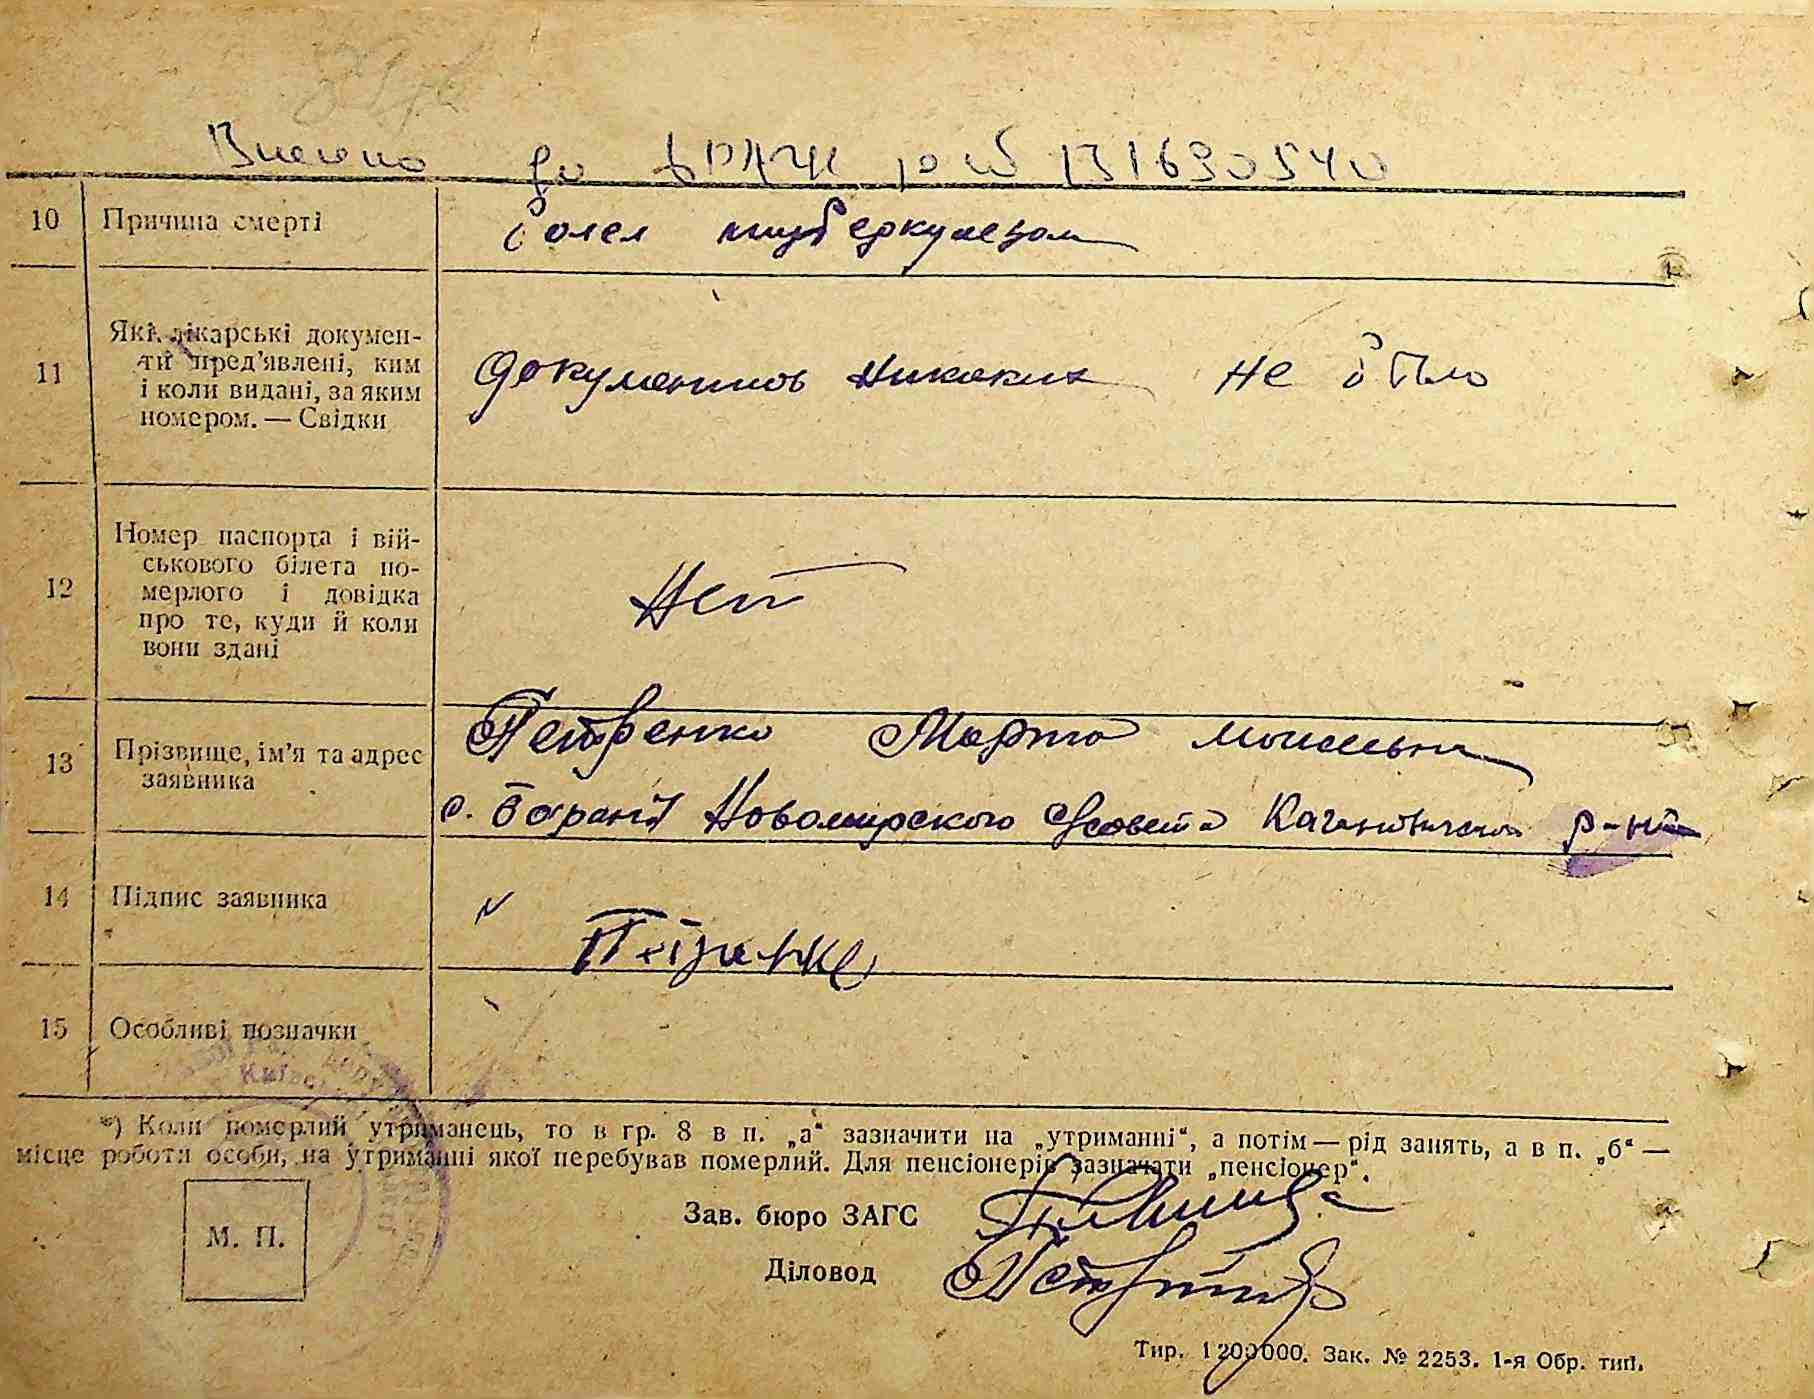 Внесено до ДРАЦС 131690540
10 Причина смерті
болел туберкулезом
11 Які лікарські докумен-
ти пред'явлені, ким
і коли видані, за яким
номером. — Свідки
Документов никаких не было
12 Номер паспорта і вій-
ськового білета по-
мерлого і довідка
про те, куди й коли
вони здані
Нет
13 Прізвище, ім'я та адрес
заявника
Петренко Марта Моисеевна
с. Новомирского с/совета Кагановичского р-на
14 Підпис заявника
Петренко
15 Особливі позначки
Київсь
*) Коли померлий утриманець, то в гр. 8 в п. „а“ зазначити на „утриманні“, а потім — рід занять, а в п. „б“ —
місце роботи особи, на утриманні якої перебував померлий. Для пенсіонерів зазначати „пенсіонер“.
М. П.
Зав. бюро ЗАГС
Діловод
Тир. 1200000. Зак. № 2253. 1-я Обр. тип.